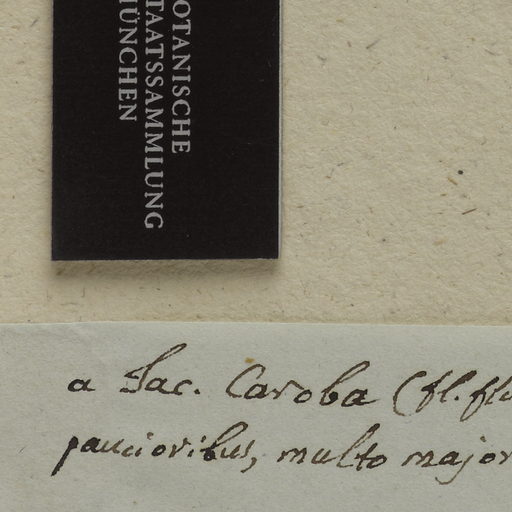 OTANISCHE
TAATSSAMMLUNG
MÜNCHEN
a Jac. Caroba (fl. flu
paucioribus, multo major